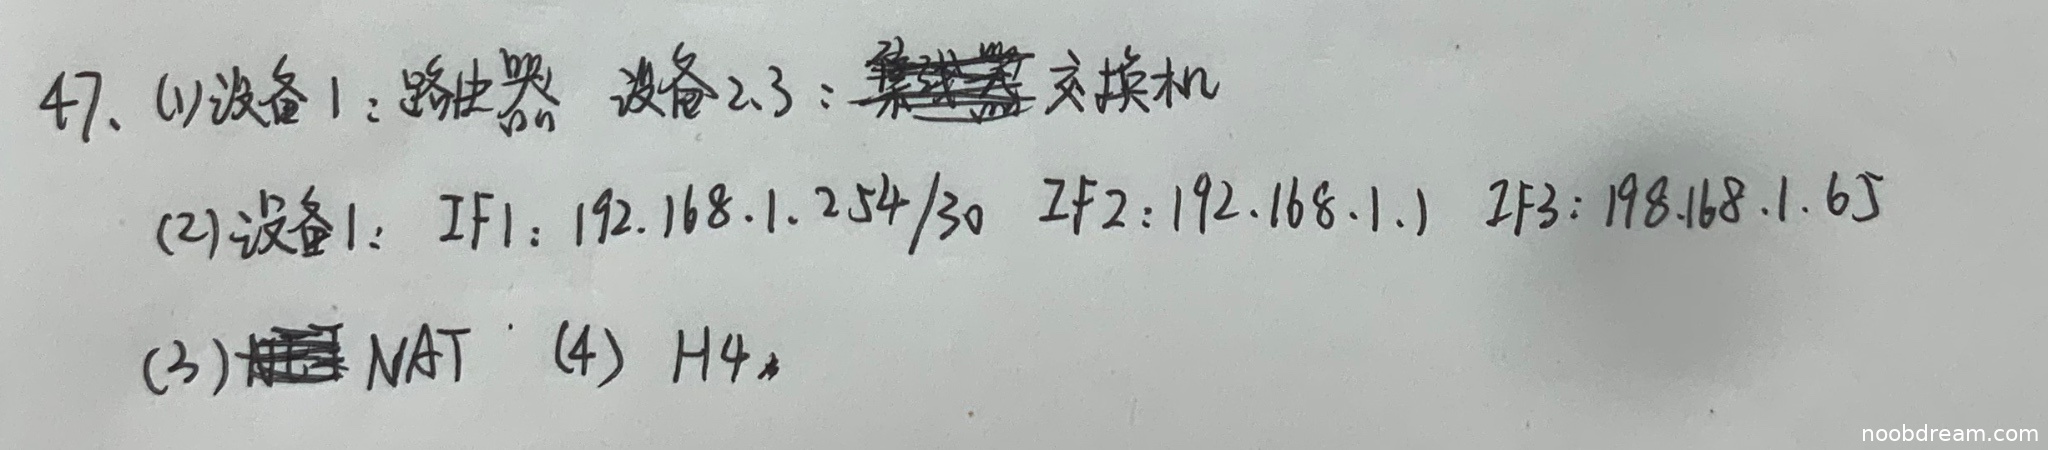 47、(1)设备1：路由器 设备2、3：交换机
(2)设备1： IF1：192.168.1.254/30 IF2：192.168.1.1 IF3：198.168.1.65
(3) NAT (4) H4。
noobdream.com